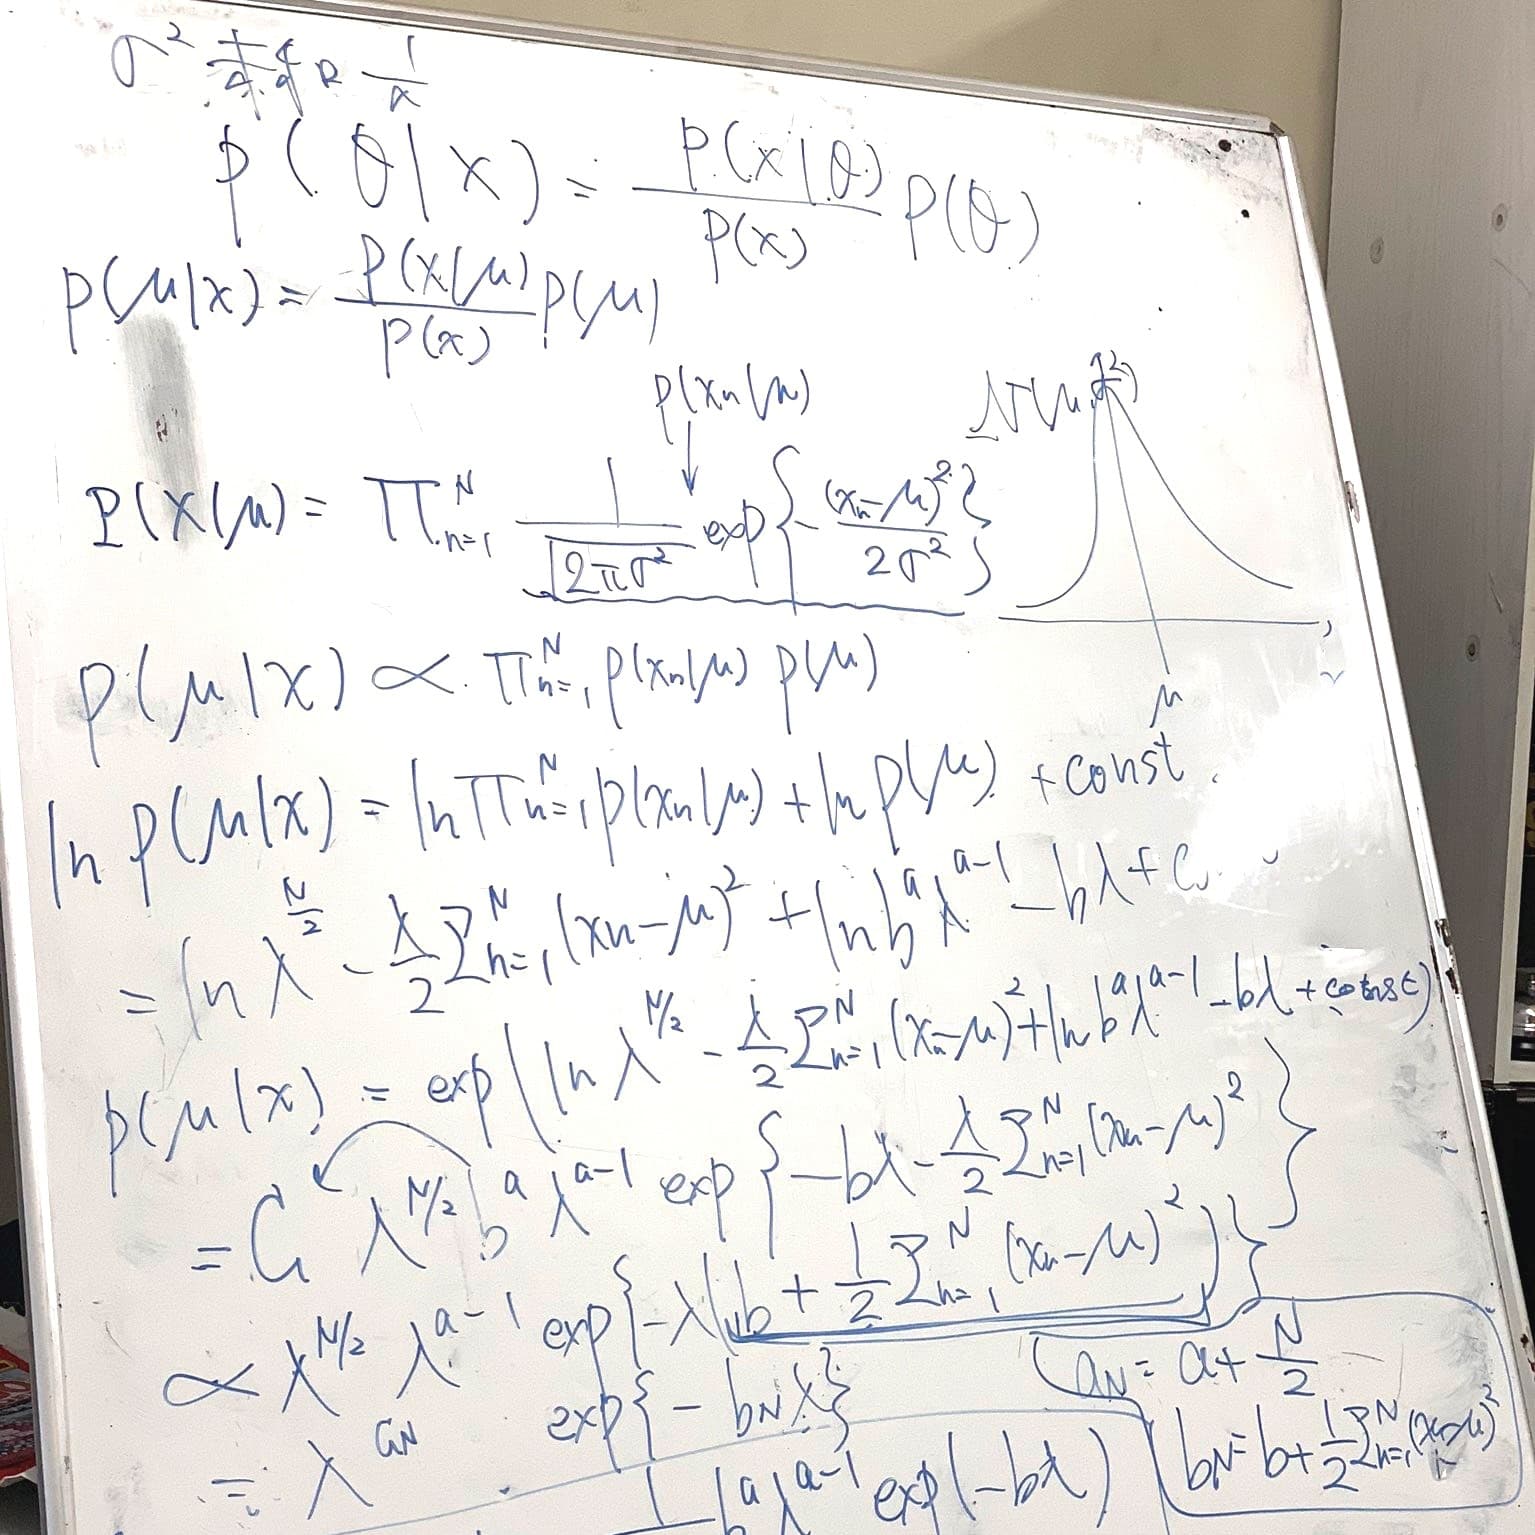 σ² 1/λ
p(θ|x) = p(x|θ)/p(x) p(θ)
p(μ|x) = p(x|μ)/p(x) p(μ)
p(xn|μ)
N(μ,σ²)
p(x|μ) = ∏_{n=1}^N 1/√(2πσ²) exp{-(xn-μ)²/2σ²}
μ
p(μ|x) ∝ ∏_{n=1}^N p(xn|μ) p(μ)
ln p(μ|x) = ln ∏_{n=1}^N p(xn|μ) + ln p(μ) + const
= ln λ^{N/2} - λ/2 ∑_{n=1}^N (xn-μ)² + ln b^a λ^{a-1} - bλ + c
p(μ|x) = exp(ln λ^{N/2} - λ/2 ∑_{n=1}^N (xn-μ)² + ln b^a λ^{a-1} - bλ + const)
= C λ^{N/2} b^a λ^{a-1} exp{-bλ - λ/2 ∑_{n=1}^N (xn-μ)²}
∝ λ^{N/2} λ^{a-1} exp{-λ(b + 1/2 ∑_{n=1}^N (xn-μ)²)}
= λ^{aN} exp{-bNλ}
aN = a + N/2
bN = b + 1/2 ∑_{n=1}^N (xn-μ)²
b^a λ^{a-1} exp(-bλ)